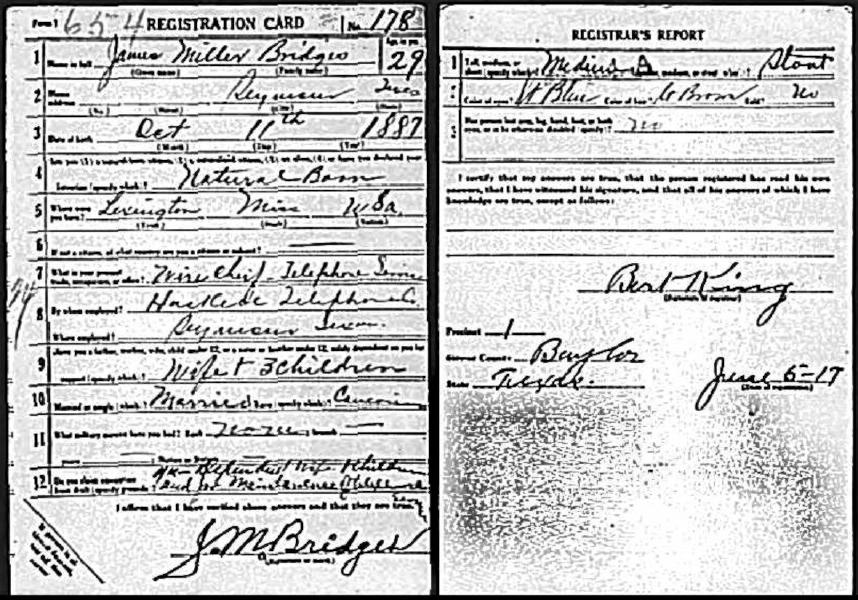 Form 1 654 REGISTRATION CARD No. 178
1 James Miller Bridges 29
Name in full (Given name) (Family name) Age, in yrs.
2 Seymour Texas
Home address (No.) (Street) (City) (State)
3 Oct 11th 1887
Date of birth (Month) (Day) (Year)
Are you (1) a natural-born citizen, (2) a naturalized citizen, (3) an alien, (4) or have you declared your
4 intention (specify which)? Natural Born
5 Where were you born? Lexington Miss USa.
(Town) (State) (Nation)
6 If not a citizen, of what country are you a citizen or subject?
7 What is your present trade, occupation, or office? Wire Chief Telephone
8 By whom employed? Haskell Telephone Co.
Where employed? Seymour Texas.
9 Have you a father, mother, wife, child under 12, or a sister or brother under 12, solely dependent on you for
support (specify which)? Wife + 3 children
10 Married or single (which)? Married Race (specify which)?
11 What military service have you had? Rank None branch
years Nation or State
12 Do you claim exemption from draft (specify grounds)? Dependent Wife + Children
and
I affirm that I have verified above answers and that they are true.
J. M Bridges
(Signature or mark)
REGISTRAR'S REPORT
1 Tall, medium, or short (specify which)? Medium Slender, medium, or stout (which)? Stout
2 Color of eyes? Lt Blue Color of hair? Lt Brown Bald? No
3 Has person lost arm, leg, hand, foot, or both eyes, or is he otherwise disabled (specify)? no
I certify that my answers are true, that the person registered has read his own
answers, that I have witnessed his signature, and that all of his answers of which I have
knowledge are true, except as follows:
Bert King
(Signature of registrar)
Precinct 1
City or County Baylor
State Texas. June 5-17
(Date of registration)